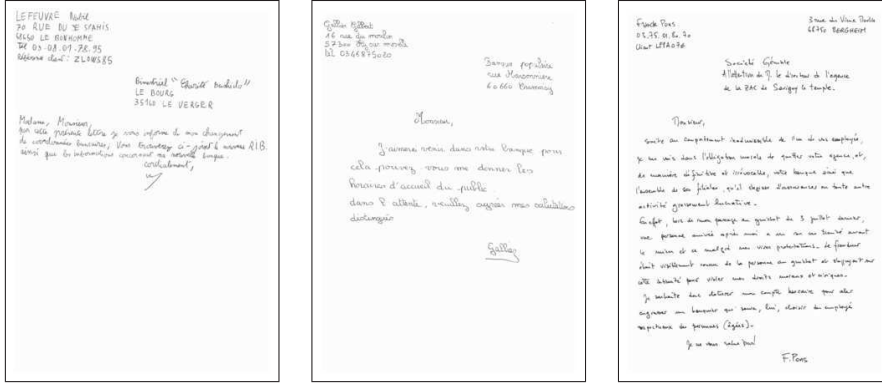 LEFEUVRE Nabil
70 RUE DU 3E SPAHIS
68650 LE BONHOMME
Tél 03.08.01.78.95
Référence client : ZLOWS85
Bimestriel "Karaté Bushido"
LE BOURG
35160 LE VERGER
Madame, Monsieur,
par cette présente lettre je vous informe de mon changement
de coordonnées bancaires, Vous trouverez ci-joint le nouveau RIB
ainsi que les informations concernant ma nouvelle banque.
cordialement,
Gallas
16 rue du moulin
Banque populaire
rue
60660
Monsieur,
J'aimerai venir dans votre banque pour
cela pouvez vous me donner les
horaires d'accueil du public.
dans l'attente, veuillez agréer mes salutations
distinguées
Gallas
Franck Pons
3 rue du Vieux
68750 BERGHEIM
Société Générale
A l'attention de M. le directeur de l'agence
de la ZAC de Savigny le temple.
Monsieur,
suite au comportement inadmissible de l'un de vos employés,
je me vois dans l'obligation morale de quitter votre agence, et,
de manière définitive et irrévocable, votre banque ainsi que
l'ensemble de ses filiales, qu'il s'agisse d'assurances ou toute autre
activité grassement lucrative.
En effet, lors de mon passage au guichet du 3 juillet dernier,
une personne arrivée après moi a vu son cas traité avant
le mien et ce malgré mes vives protestations. Le fraudeur
était visiblement connu de la personne au guichet et s'appuyait sur
cette intimité pour violer mes droits moraux et civiques.
Je souhaite donc clôturer mon compte bancaire pour aller
engraisser un banquier qui saura, lui, choisir des employés
respectueux des personnes (âgées).
Je ne vous salue pas!
F. Pons